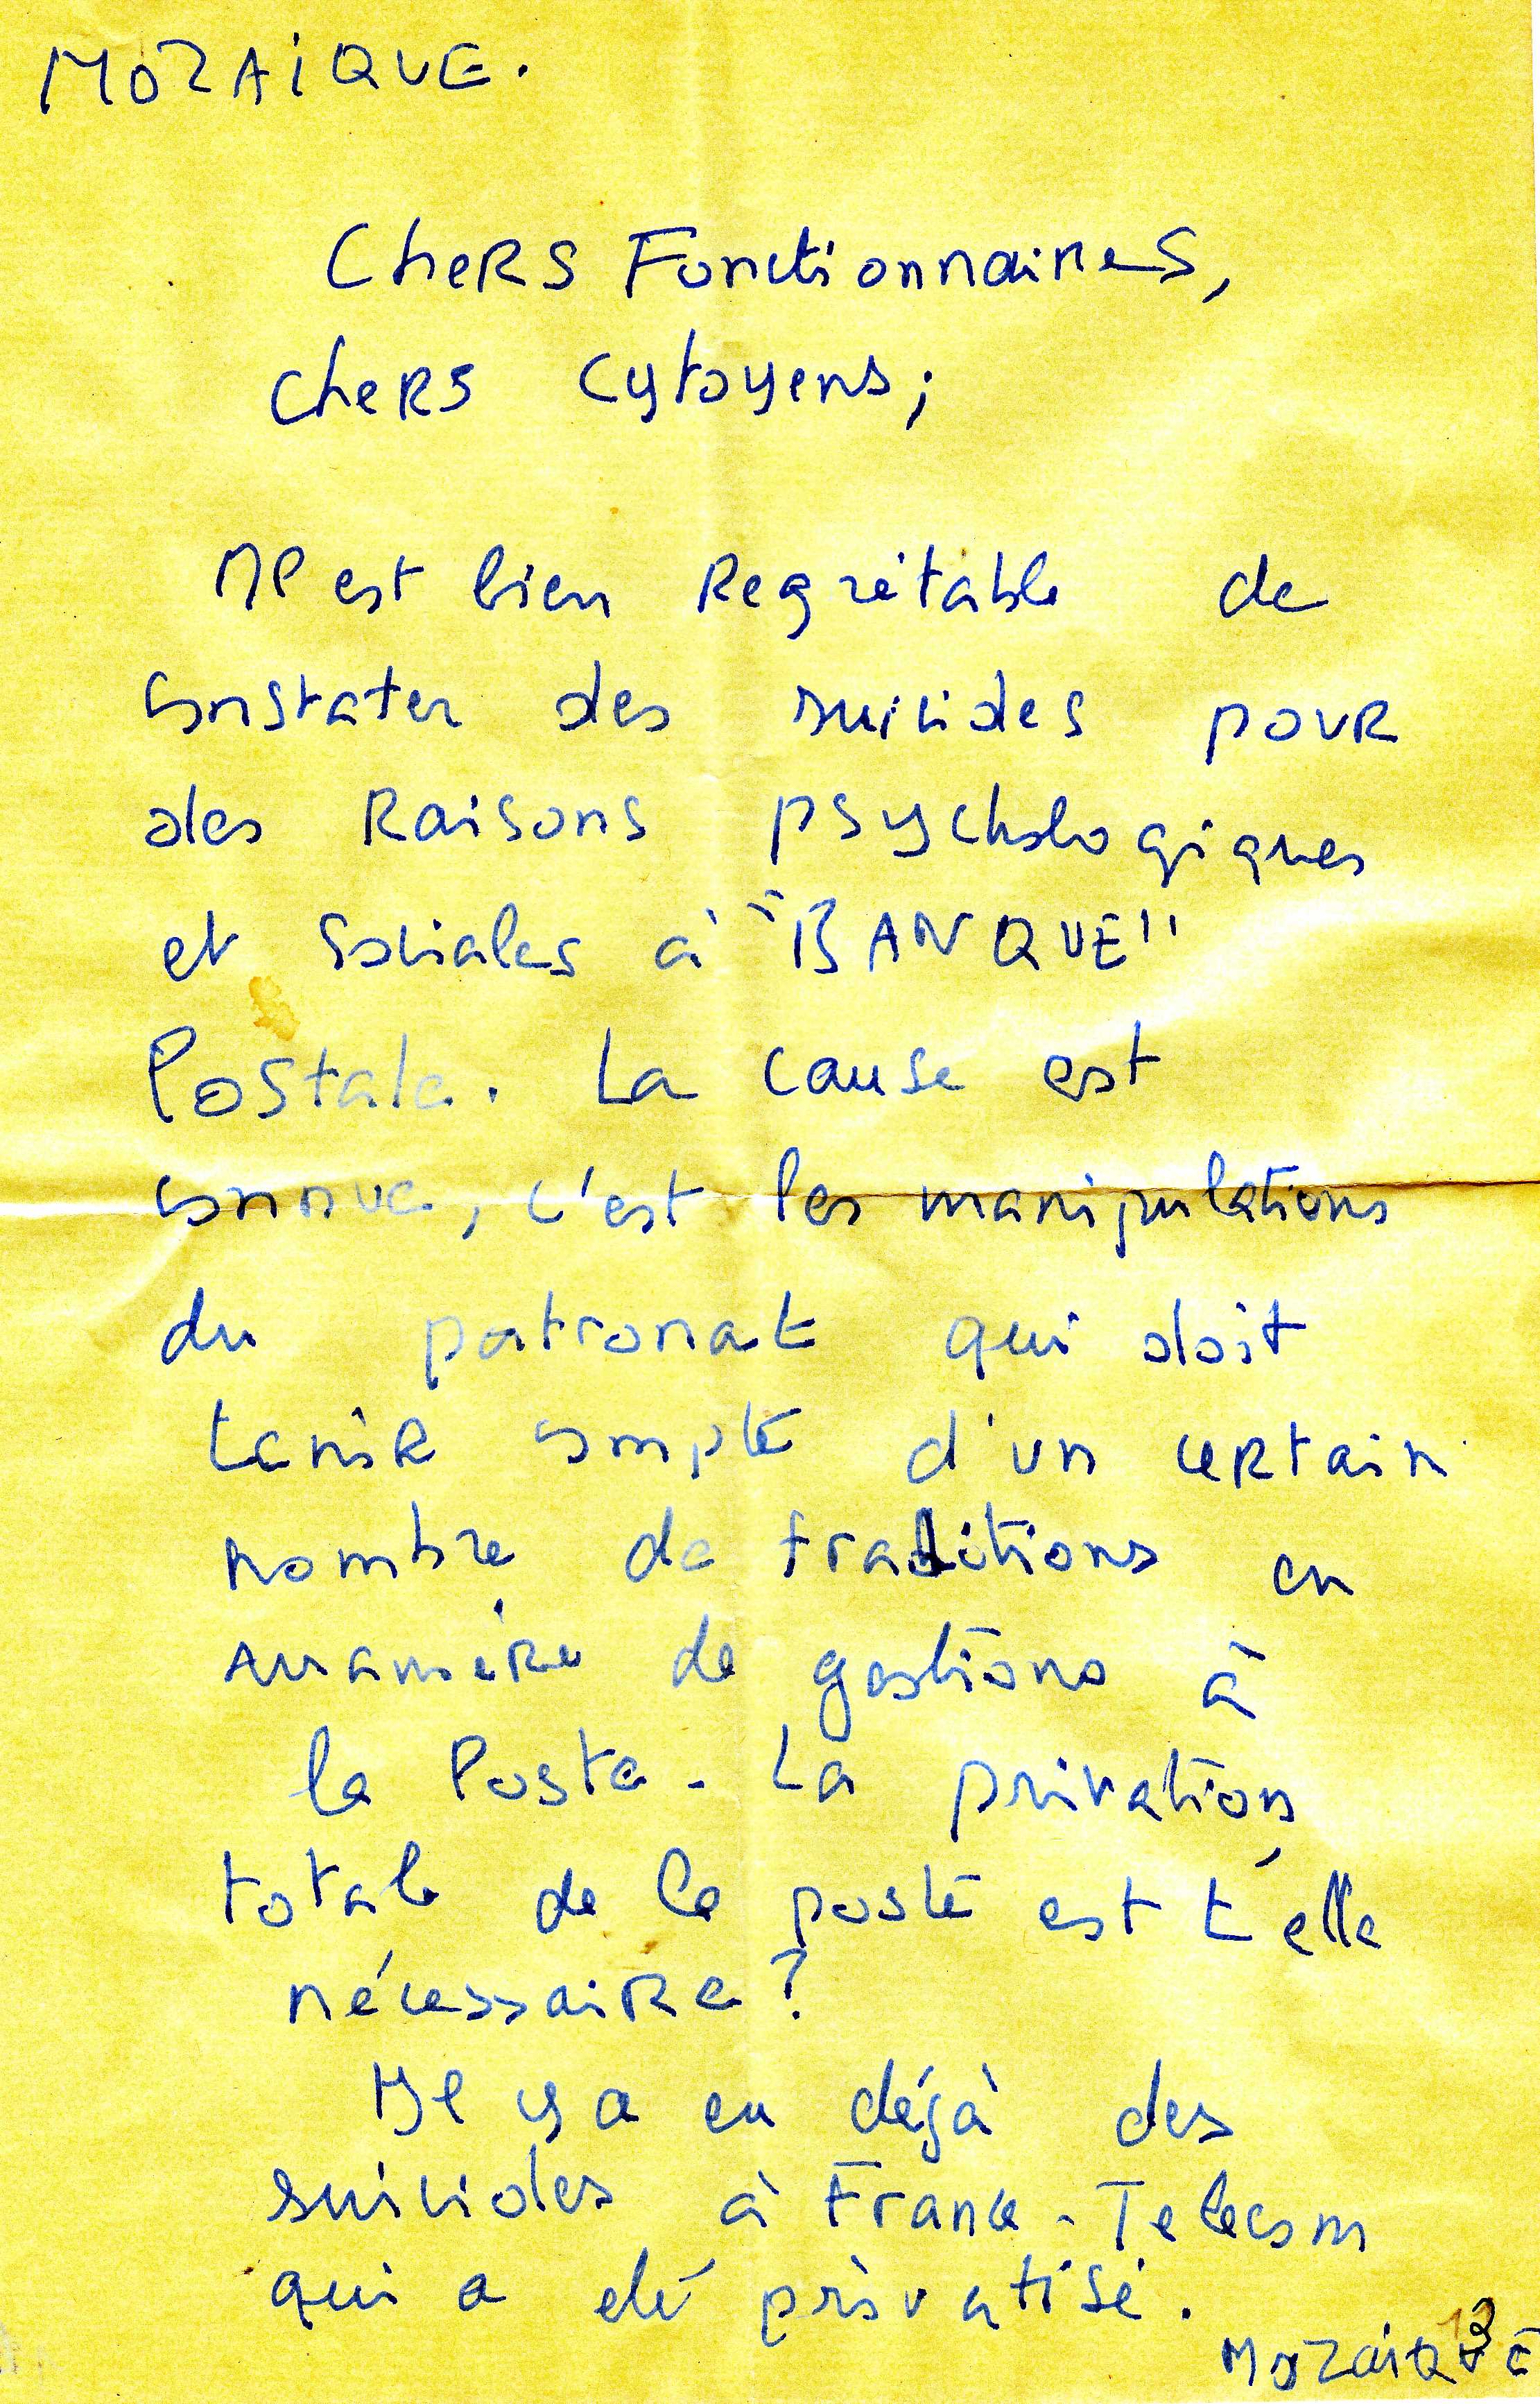 MOZAÏQUE.
Chers Fonctionnaires,
chers cytoyens;
Il est bien Regrétable de
constater des suicides pour
des Raisons psychologiques
et sociales à "BANQUE"
Postale. La cause est
connue, c'est les manipulations
du patronat qui doit
tenir compte d'un certain
nombre de traditions en
manière de gestions à
la Poste. La privation
totale de la poste est t'elle
nécessaire?
Il y a eu déjà des
suicides à France-Telecom
qui a été privatisé.
MOZAÏQUE